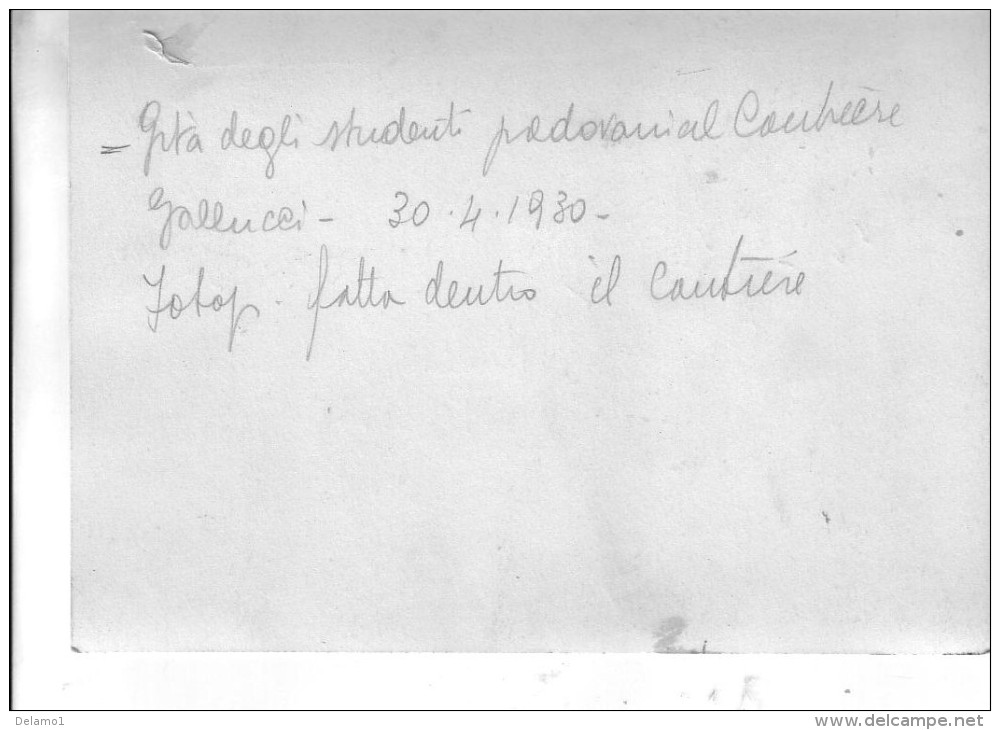 = Gita degli studenti padovani al Cantiere
Gallucci - 30.4.1930-
Fotop. fatta dentro il Cantiere
Delamo1
www.delcampe.net